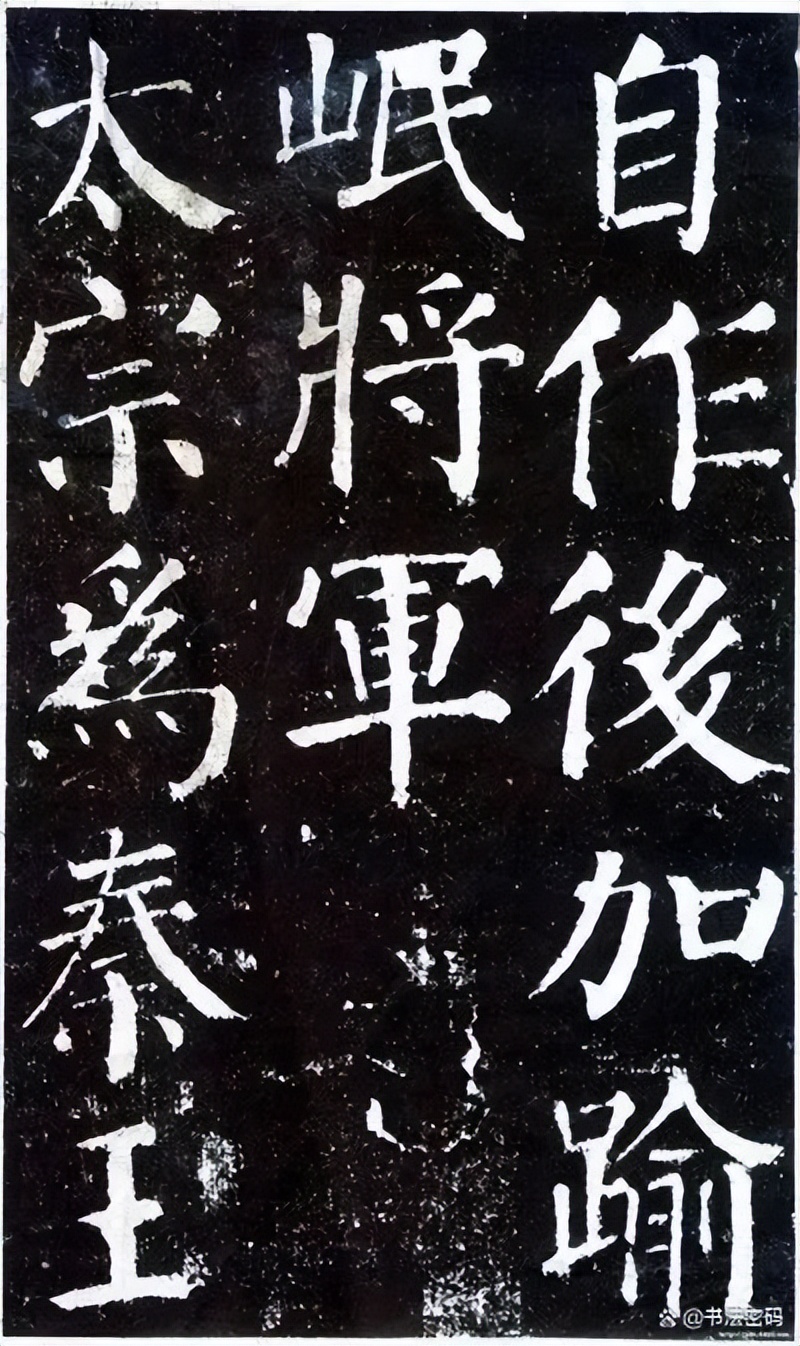 自作後加踰
岷將軍
太宗為秦王
@书法密码